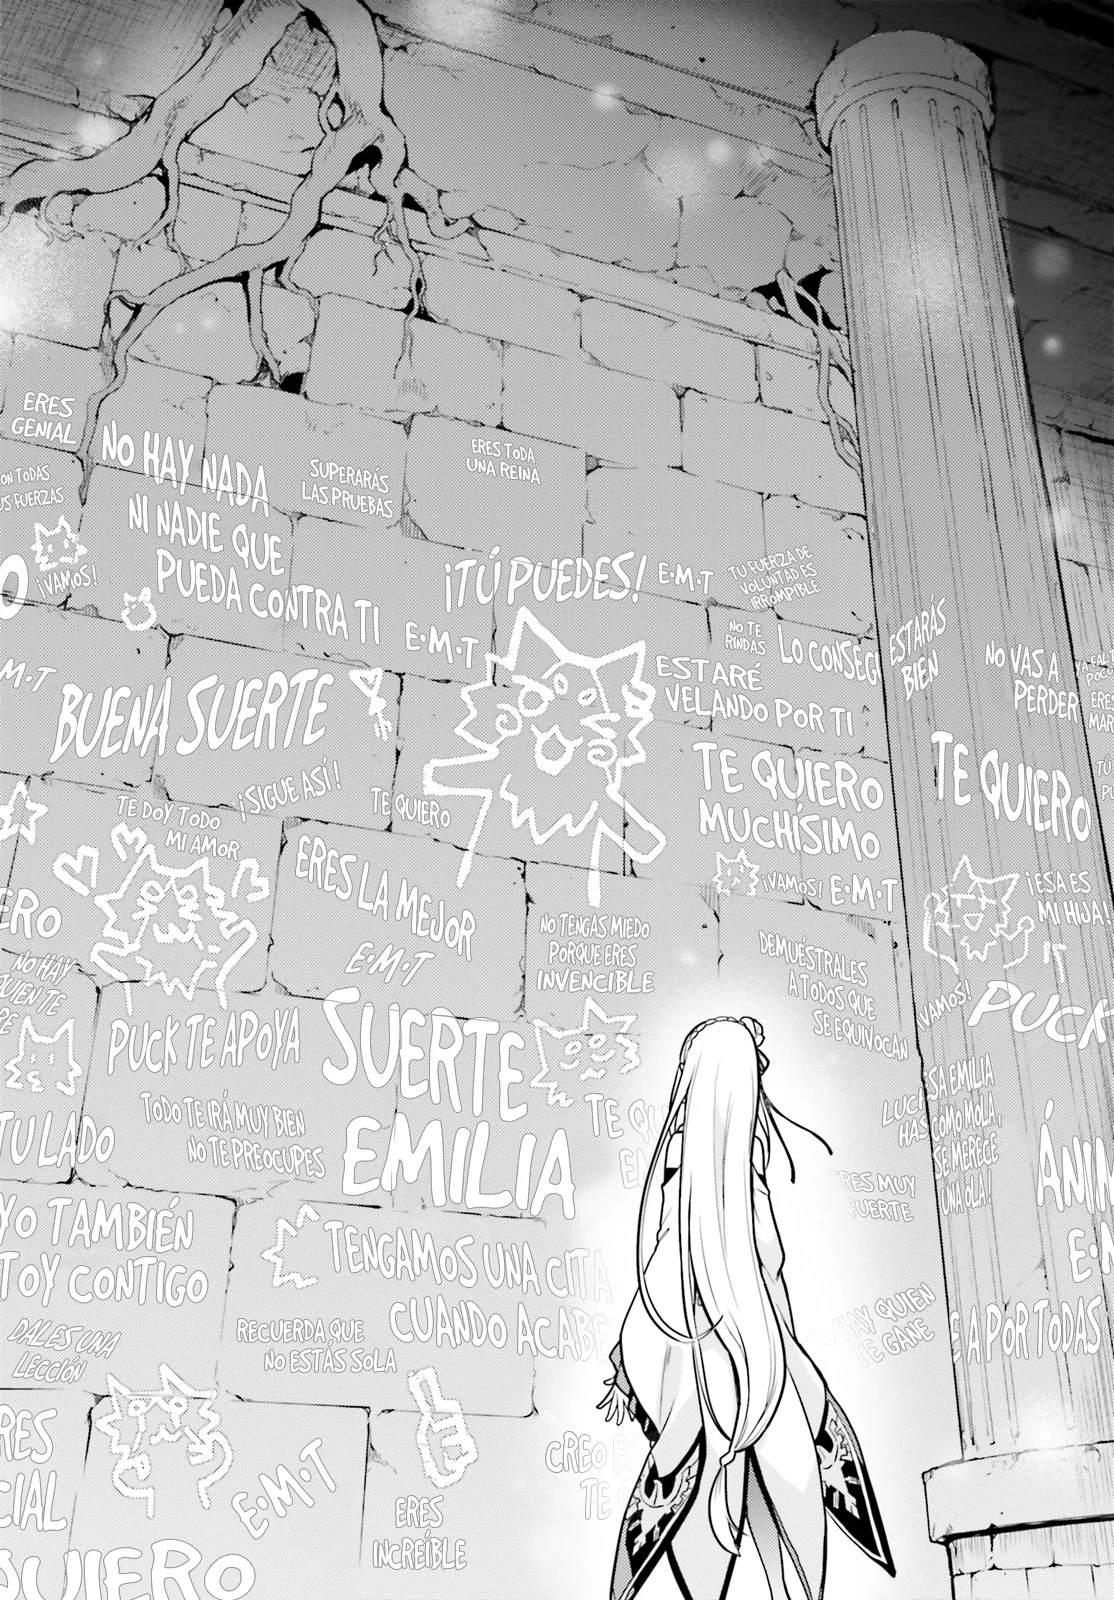 ERES
GENIAL
NO HAY NADA
NI NADIE QUE
PUEDA CONTRA TI
SUPERARÁS
LAS PRUEBAS
ERES TODA
UNA REINA
ON TODAS
US FUERZAS
¡VAMOS!
O
¡TÚ PUEDES!
E·M·T
TU FUERZA DE
VOLUNTAD ES
IRROMPIBLE
E·M·T
NO TE
RINDAS
LO CONSEGU
ESTARÁS
BIEN
NO VAS A
PERDER
M·T
BUENA SUERTE
ESTARÉ
VELANDO POR TI
ERES
MAR
¡SIGUE ASÍ!
TE QUIERO
TE QUIERO
MUCHÍSIMO
TE QUIERO
TE DOY TODO
MI AMOR
ERES LA MEJOR
E·M·T
¡VAMOS!
E·M·T
¡ESA ES
MI HIJA!
ERO
NO TENGAS MIEDO
PORQUE ERES
INVENCIBLE
DEMUÉSTRALES
A TODOS QUE
SE EQUIVOCAN
NO HAY
QUIEN TE
PUCK TE APOYA
SUERTE
EMILIA
¡VAMOS!
PUCK
TU LADO
TODO TE IRÁ MUY BIEN
NO TE PREOCUPES
TE QU
EM
SA EMILIA
COMO MOLA,
SE MERECE
UNA OLA!
ÁNIM
E·M
ERES MUY
FUERTE
YO TAMBIÉN
TOY CONTIGO
TENGAMOS UNA CITA
CUANDO ACABE
DALES UNA
LECCIÓN
RECUERDA QUE
NO ESTÁS SOLA
HAY QUIEN
TE GANE
E A POR TODAS
RES
CIAL
E·M·T
ERES
INCREÍBLE
CREO EN
TE
QUIERO